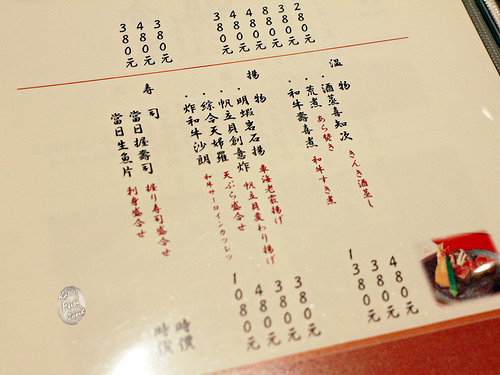 280元
380元
480元
480元
480元
380元
380元
480元
380元
溫物
・酒蒸喜知次 きんき酒蒸し 480元
・荒煮 あら炊き 380元
・和牛壽喜煮 和牛すき煮 1380元
揚物
・明蝦岩石揚 車海老霰揚げ 380元
・帆立貝創意炸 帆立貝変わり揚げ 380元
・綜合天婦羅 天ぷら盛合せ 480元
・炸和牛沙朗 和牛サーロインカツレツ 1080元
壽司
當日握壽司 握り寿司盛合せ 時價
當日生魚片 刺身盛合せ 時價